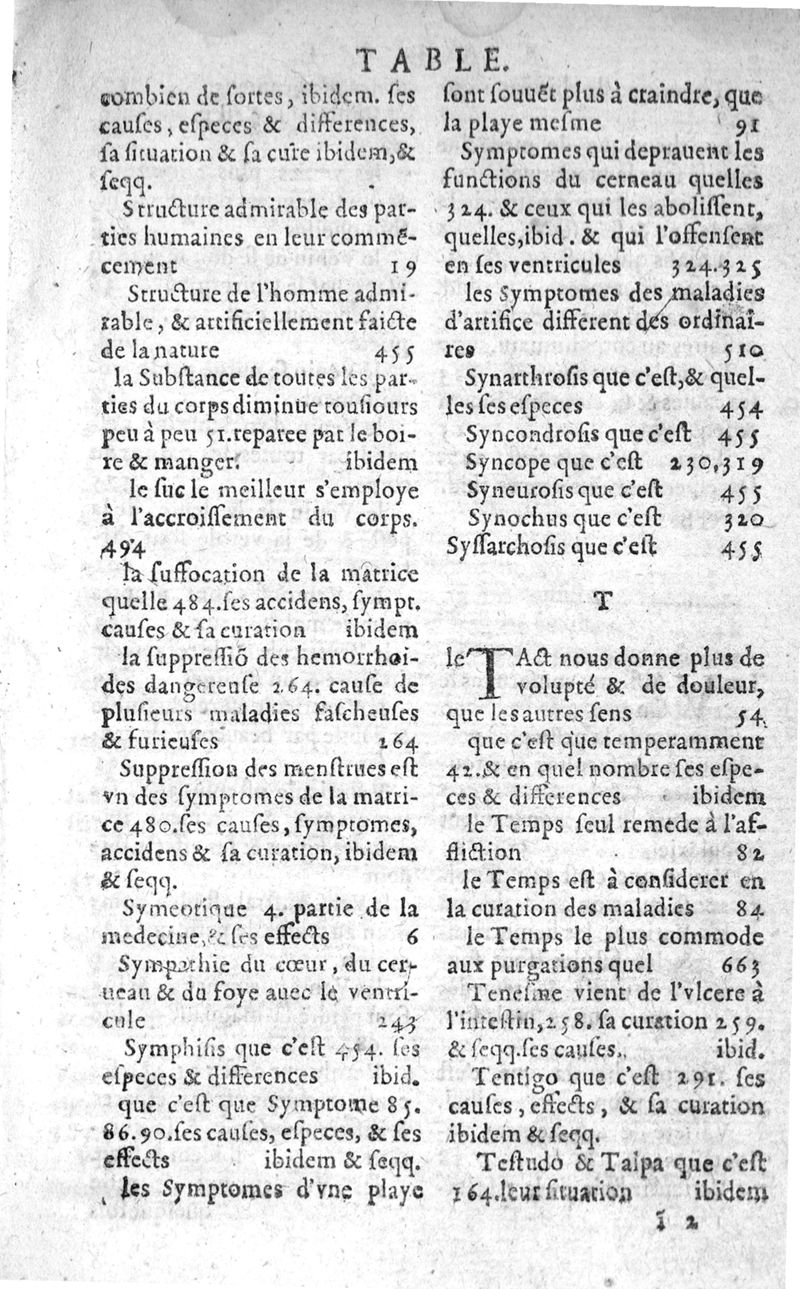 TABLE.
combien de ſortes, ibidem. ſes
cauſes, eſpeces & differences,
ſa ſituation & ſa cure ibidem, &
ſeqq.
Structure admirable des par-
ties humaines en leur commẽ-
cement 19
Structure de l'homme admi-
rable, & artificiellement faicte
de la nature 455
la Subſtance de toutes les par-
ties du corps diminue touſiours
peu à peu 51. reparee par le boi-
re & manger. ibidem
le ſuc le meilleur s'employe
à l'accroiſſement du corps.
494
la ſuffocation de la matrice
quelle 484. ſes accidens, ſympt.
cauſes & ſa curation ibidem
la ſuppreſſiõ des hemorrhoi-
des dangereuſe 264. cauſe de
pluſieurs maladies faſcheuſes
& furieuſes 264
Suppreſſion des menſtrues eſt
vn des ſymptomes de la matri-
ce 480. ſes cauſes, ſymptomes,
accidens & ſa curation, ibidem
& ſeqq.
Symeotique 4. partie de la
medecine, & ſes effects 6
Sympathie du cœur, du cer-
ueau & du foye auec le ventri-
cule 243
Symphiſis que c'eſt 454. ſes
eſpeces & differences ibid.
que c'eſt que Symptome 85.
86.90. ſes cauſes, eſpeces, & ſes
effects ibidem & ſeqq.
les Symptomes d'vne playe
ſont ſouuẽt plus à craindre, que
la playe meſme 91
Symptomes qui deprauent les
functions du cerueau quelles
324. & ceux qui les aboliſſent,
quelles, ibid. & qui l'offenſent
en ſes ventricules 324.325
les Symptomes des maladies
d'artifice different des ordinai-
res 510
Synarthroſis que c'eſt, & quel-
les ſes eſpeces 454
Syncondroſis que c'eſt 455
Syncope que c'eſt 230,319
Syneuroſis que c'eſt 455
Synochus que c'eſt 320
Syſſarchoſis que c'eſt 455
T
le TAct nous donne plus de
volupté & de douleur,
que les autres ſens 54
que c'eſt que temperamment
42. & en quel nombre ſes eſpe-
ces & differences ibidem
le Temps ſeul remede à l'af-
fliction 82
le Temps eſt à conſiderer en
la curation des maladies 84
le Temps le plus commode
aux purgations quel 663
Teneſme vient de l'vlcere à
l'inteſtin, 258. ſa curation 259.
& ſeqq. ſes cauſes. ibid.
Tentigo que c'eſt 291. ſes
cauſes, effects, & ſa curation
ibidem & ſeqq.
Teſtudo & Talpa que c'eſt
164. leur ſituation ibidem
ĩ 2